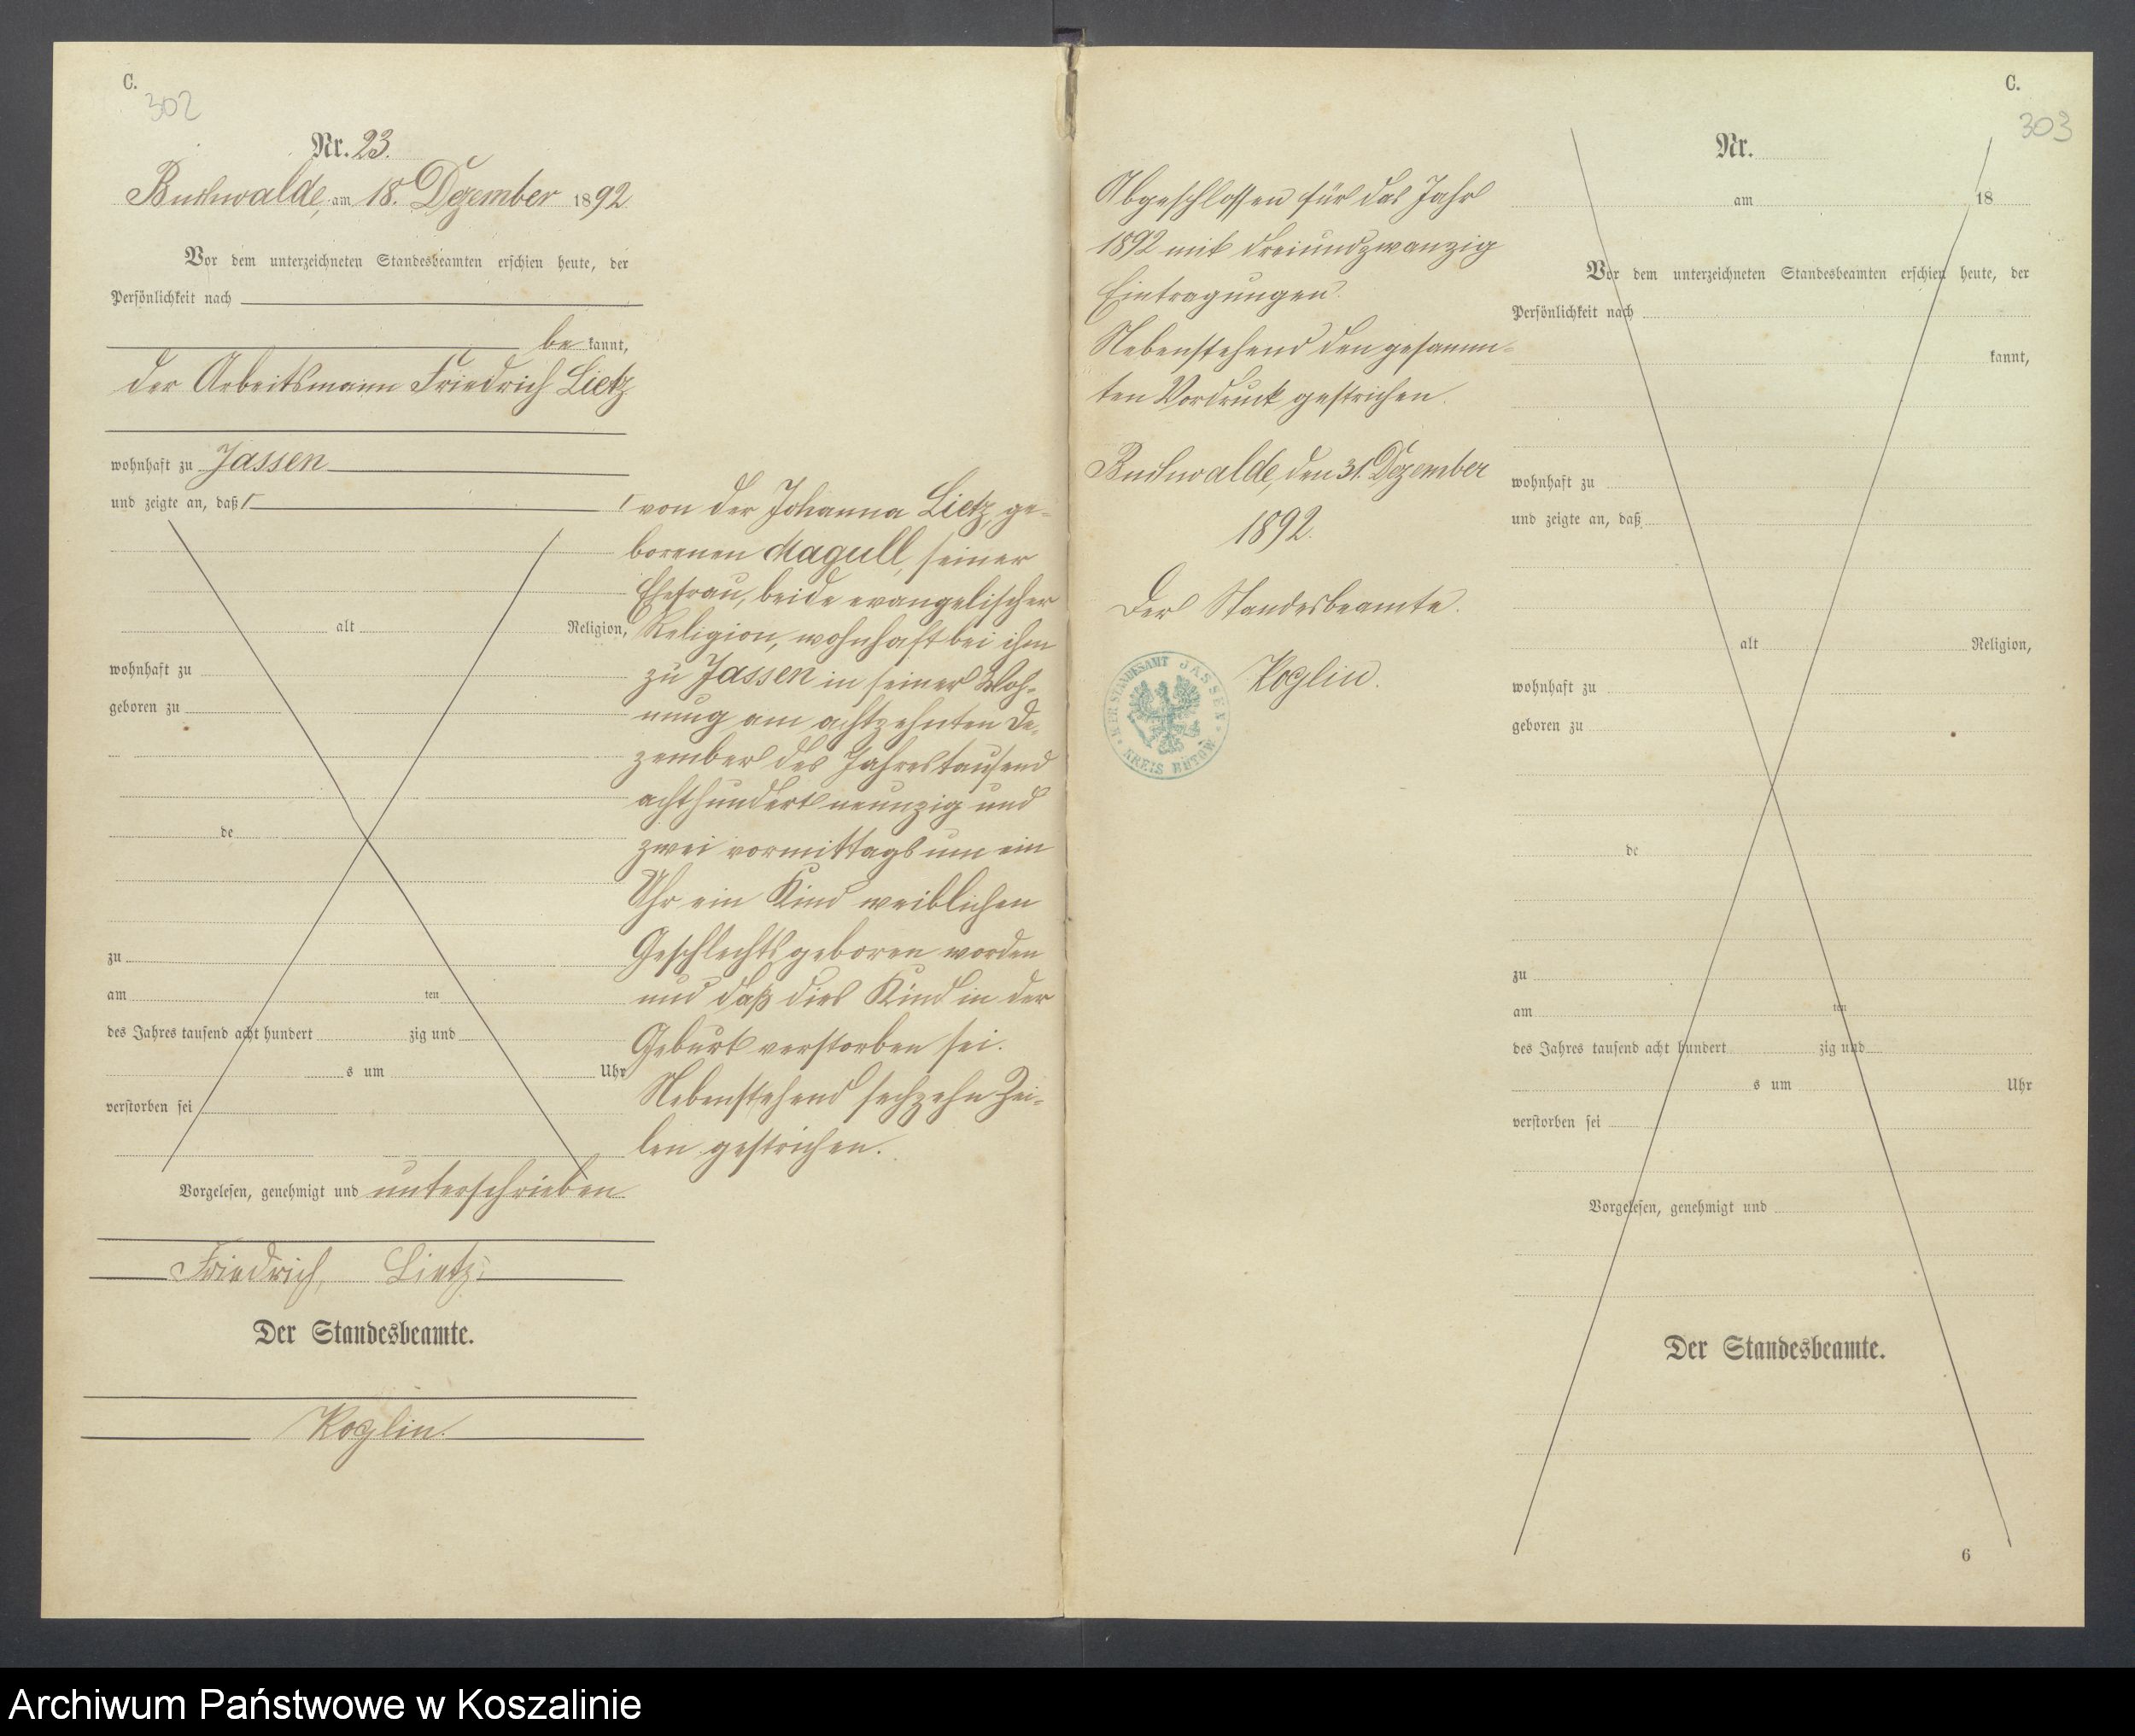 C.
302
Nr. 23.
Buchwalde, am 18. Dezember 1892
Vor dem unterzeichneten Standesbeamten erschien heute, der
Persönlichkeit nach
be kannt,
der Arbeitsmann Friedrich Lietz
wohnhaft zu Jassen
und zeigte an, daß
alt Religion,
wohnhaft zu
geboren zu
de
zu
am ten
des Jahres tausend acht hundert zig und
s um Uhr
verstorben sei
von der Johanna Lietz, ge-
borenen Magull, seiner
Ehefrau, beide evangelischer
Religion, wohnhaft bei ihm
zu Jassen in seiner Woh-
nung am achtzehnten De-
zember des Jahres tausend
achthundert neunzig und
zwei vormittags um ein
Uhr ein Kind weiblichen
Geschlechts geboren worden
und daß dies Kind in der
Geburt verstorben sei.
Nebenstehend sechzehn Zei-
len gestrichen.
Vorgelesen, genehmigt und unterschrieben
Friedrich Lietz
Der Standesbeamte.
Koglin.
Abgeschlossen für das Jahr
1892 mit dreiundzwanzig
Eintragungen.
Nebenstehend den gesamm-
ten Vordruck gestrichen.
Buchwalde, den 31. Dezember
1892.
Der Standesbeamte.
Koglin.
STANDESAMT JASSEN
KREIS BÜTOW
C.
303
Nr.
am 18
Vor dem unterzeichneten Standesbeamten erschien heute, der
Persönlichkeit nach
kannt,
wohnhaft zu
und zeigte an, daß
alt Religion,
wohnhaft zu
geboren zu
de
zu
am ten
des Jahres tausend acht hundert zig und
s um Uhr
verstorben sei
Vorgelesen, genehmigt und
Der Standesbeamte.
6
Archiwum Państwowe w Koszalinie